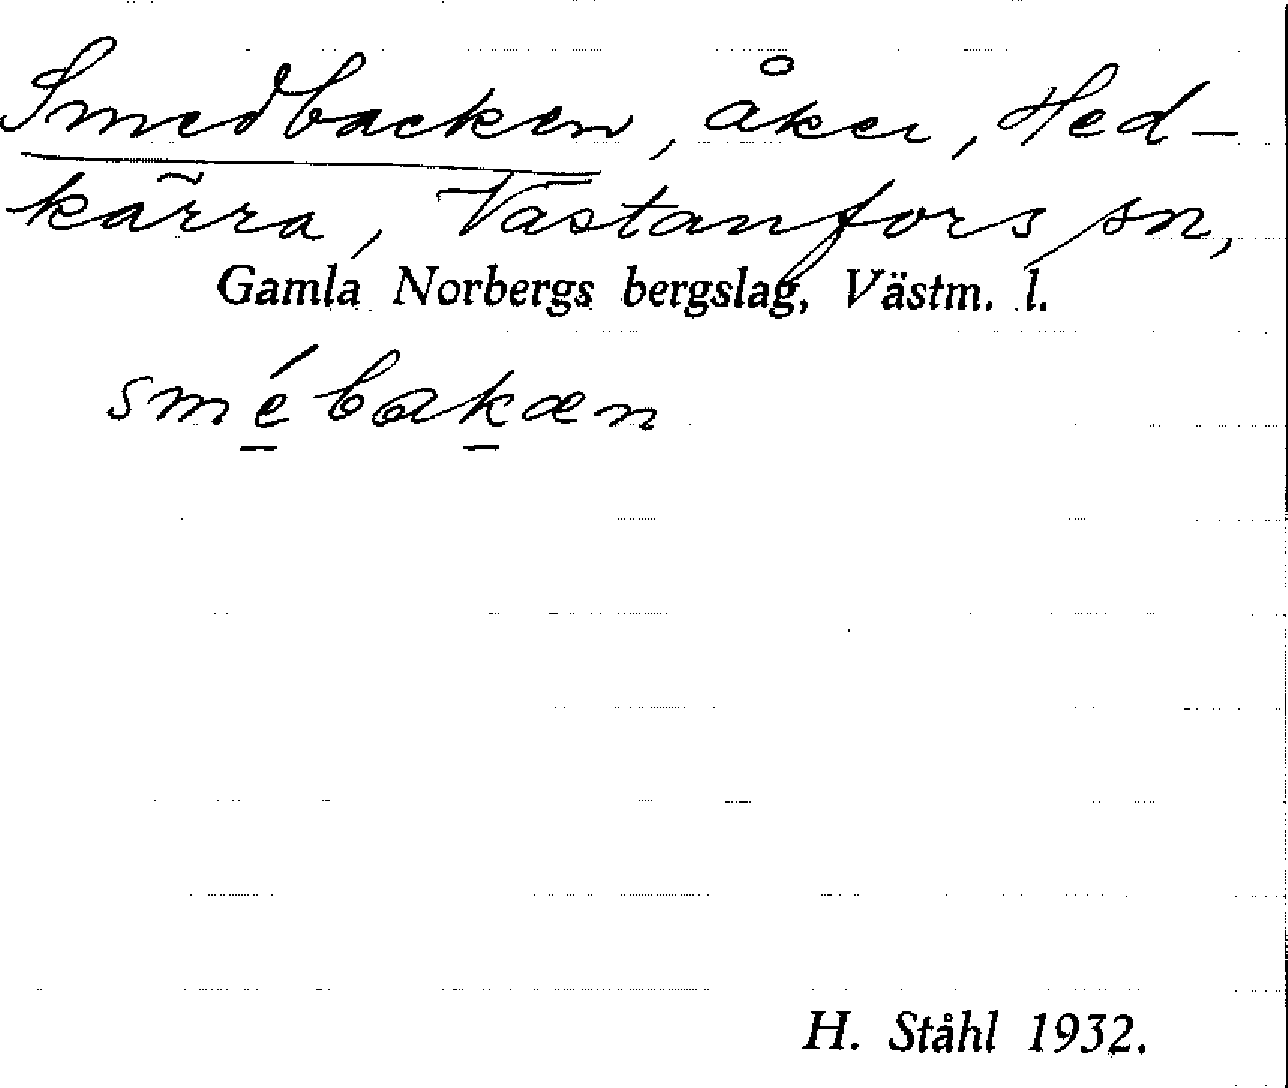 Smedbacken, åker, Hed-
kärra, Västanfors sn,
Gamla Norbergs bergslag, Västm. l.
smébakæn
H. Ståhl 1932.